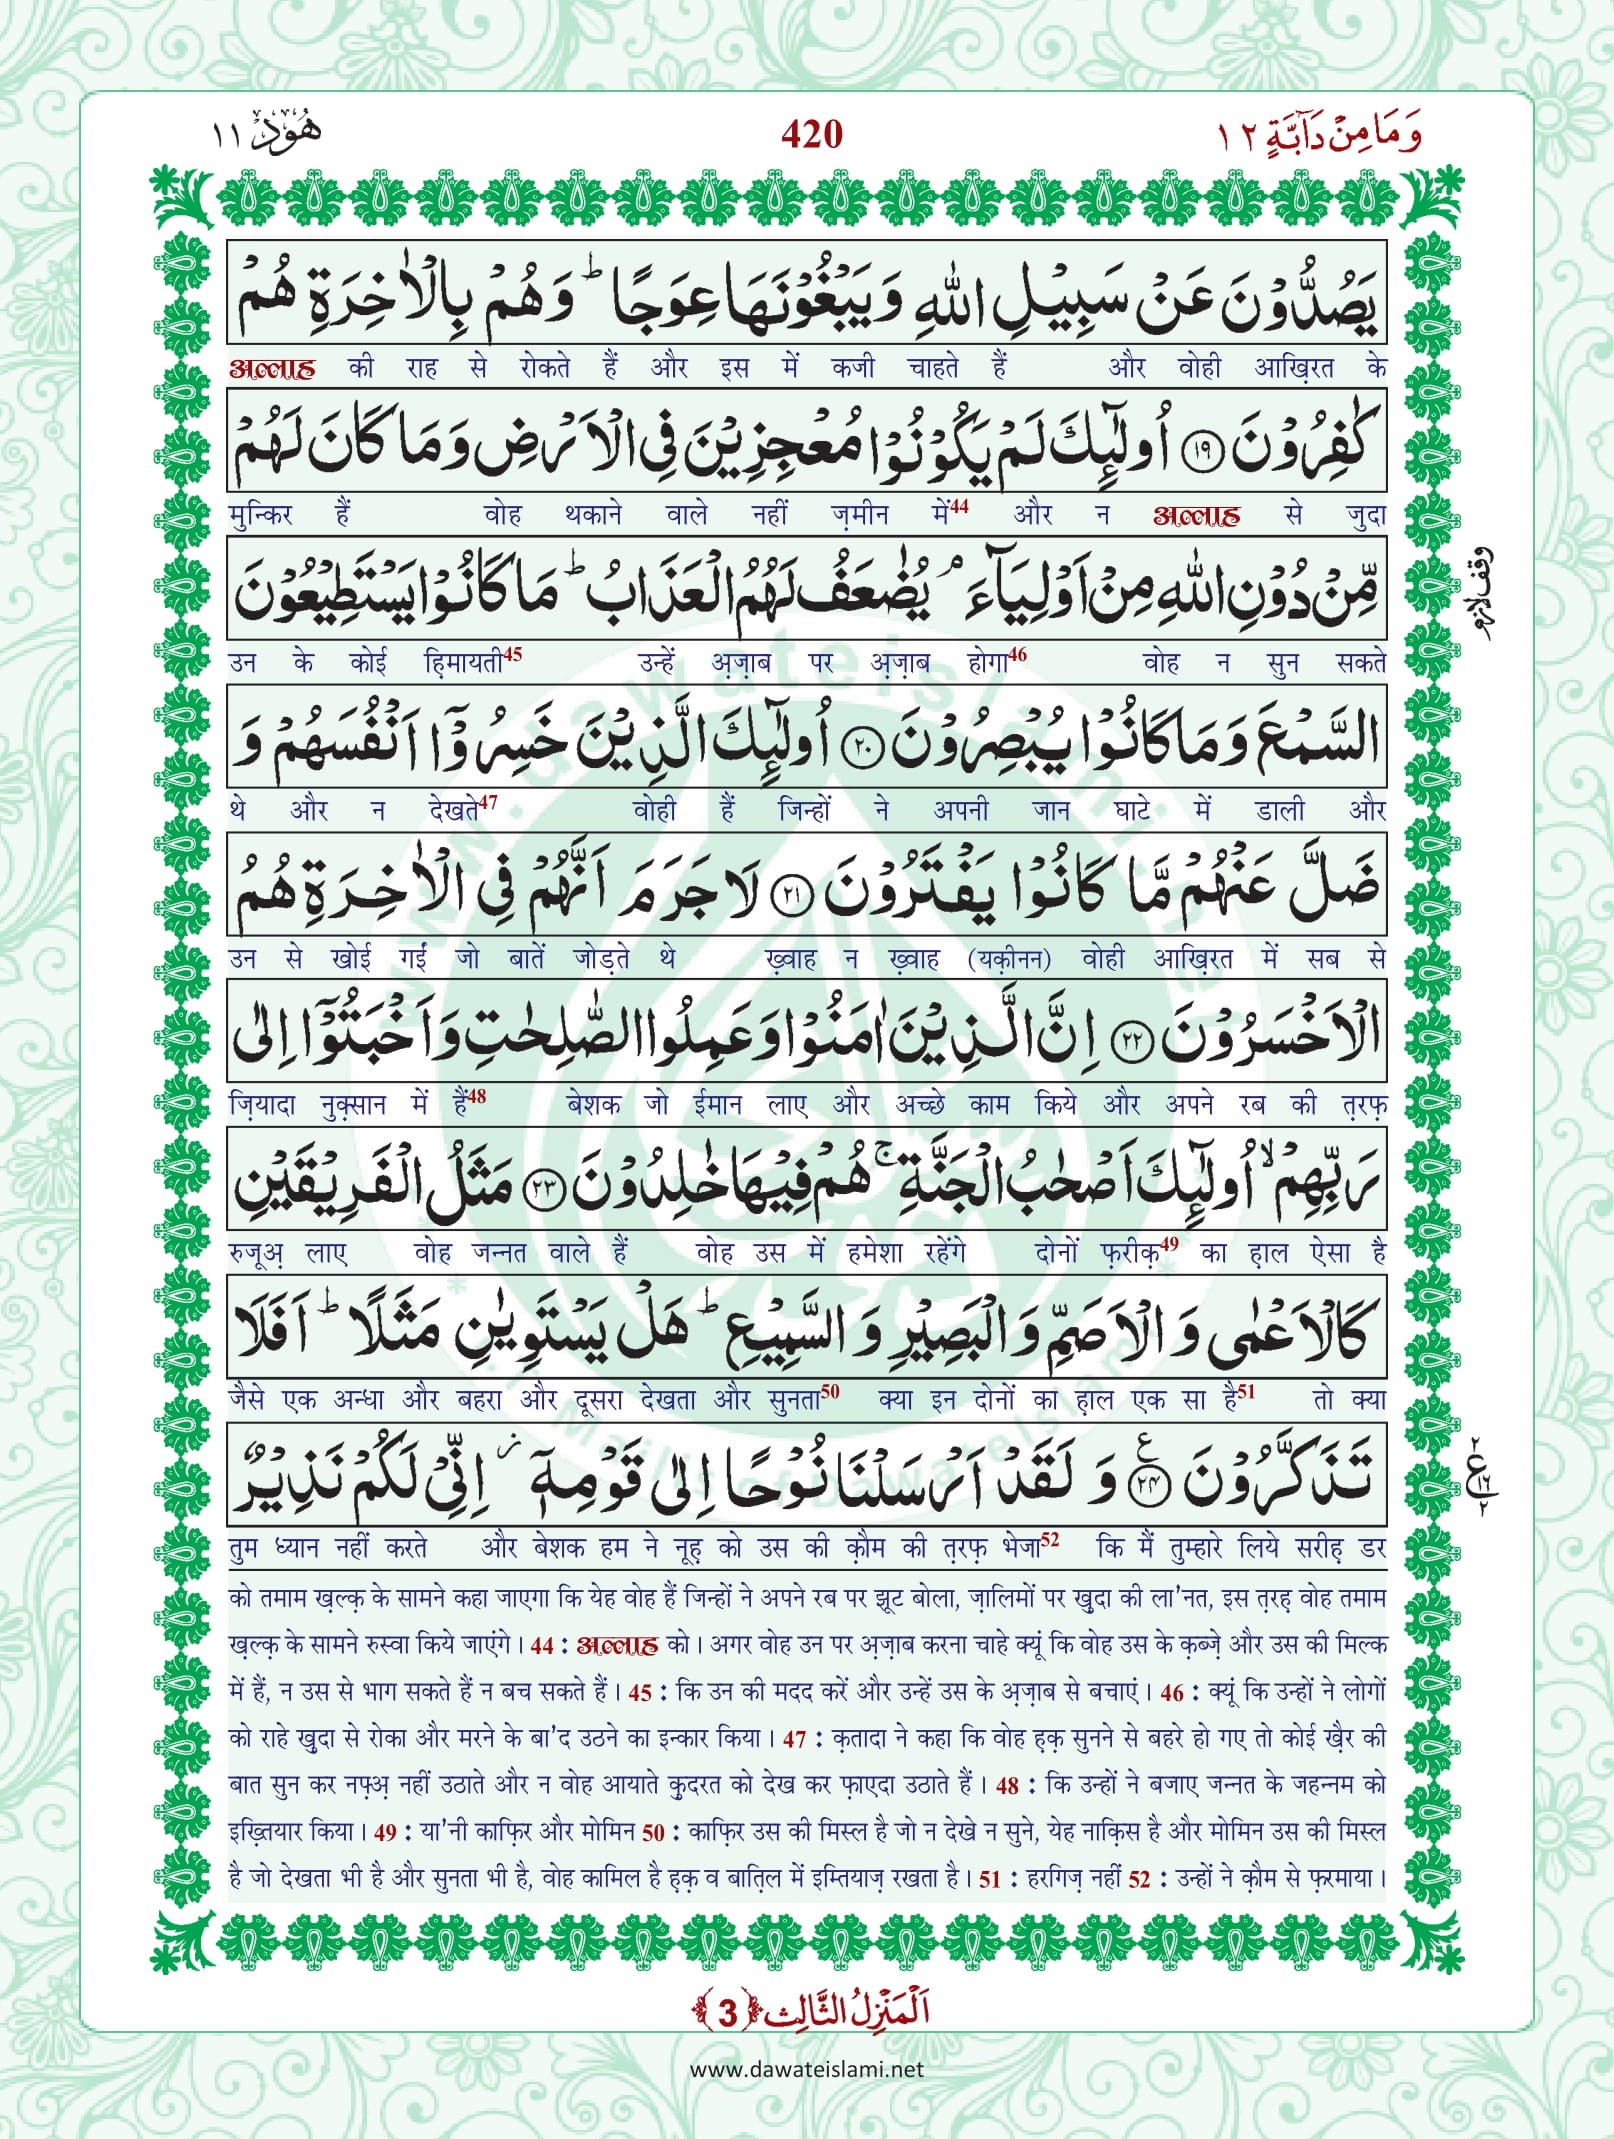 وَمَا مِنْ دَآبَّةٍ ١٢
420
هُوْد ١١
يَصُدُّوْنَ عَنْ سَبِيْلِ اللّٰهِ وَيَبْغُوْنَهَا عِوَجًا ؕ وَهُمْ بِالْاٰخِرَةِ هُمْ
अल्लाह की राह से रोकते हैं और इस में कजी चाहते हैं और वोही आख़िरत के
كٰفِرُوْنَ ﴿١٩﴾ اُولٰٓئِكَ لَمْ يَكُوْنُوْا مُعْجِزِيْنَ فِى الْاَرْضِ وَمَا كَانَ لَهُمْ
मुन्किर हैं वोह थकाने वाले नहीं ज़मीन में44 और न अल्लाह से जुदा
مِّنْ دُوْنِ اللّٰهِ مِنْ اَوْلِيَآءَ ۘ يُضٰعَفُ لَهُمُ الْعَذَابُ ؕ مَا كَانُوْا يَسْتَطِيْعُوْنَ
وقف لازم
उन के कोई ह़िमायती45 उन्हें अ़ज़ाब पर अ़ज़ाब होगा46 वोह न सुन सकते
السَّمْعَ وَمَا كَانُوْا يُبْصِرُوْنَ ﴿٢٠﴾ اُولٰٓئِكَ الَّذِيْنَ خَسِرُوْۤا اَنْفُسَهُمْ وَ
थे और न देखते47 वोही हैं जिन्हों ने अपनी जान घाटे में डाली और
ضَلَّ عَنْهُمْ مَّا كَانُوْا يَفْتَرُوْنَ ﴿٢١﴾ لَا جَرَمَ اَنَّهُمْ فِى الْاٰخِرَةِ هُمُ
उन से खोई गईं जो बातें जोड़ते थे ख़्वाह न ख़्वाह (यक़ीनन) वोही आख़िरत में सब से
الْاَخْسَرُوْنَ ﴿٢٢﴾ اِنَّ الَّذِيْنَ اٰمَنُوْا وَعَمِلُوا الصّٰلِحٰتِ وَاَخْبَتُوْۤا اِلٰى
ज़ियादा नुक़्सान में हैं48 बेशक जो ईमान लाए और अच्छे काम किये और अपने रब की त़रफ़
رَبِّهِمْ ۙ اُولٰٓئِكَ اَصْحٰبُ الْجَنَّةِ ۚ هُمْ فِيْهَا خٰلِدُوْنَ ﴿٢٣﴾ مَثَلُ الْفَرِيْقَيْنِ
रुजूअ़ लाए वोह जन्नत वाले हैं वोह उस में हमेशा रहेंगे दोनों फ़रीक़49 का ह़ाल ऐसा है
كَالْاَعْمٰى وَ الْاَصَمِّ وَ الْبَصِيْرِ وَ السَّمِيْعِ ؕ هَلْ يَسْتَوِيٰنِ مَثَلًا ؕ اَفَلَا
जैसे एक अन्धा और बहरा और दूसरा देखता और सुनता50 क्या इन दोनों का ह़ाल एक सा है51 तो क्या
تَذَكَّرُوْنَ ﴿٢٤﴾ ع وَ لَقَدْ اَرْسَلْنَا نُوْحًا اِلٰى قَوْمِهٖۤ ۫ اِنِّىْ لَكُمْ نَذِيْرٌ
तुम ध्यान नहीं करते और बेशक हम ने नूह़ को उस की क़ौम की त़रफ़ भेजा52 कि मैं तुम्हारे लिये सरीह़ डर
को तमाम ख़ल्क़ के सामने कहा जाएगा कि येह वोह हैं जिन्हों ने अपने रब पर झूट बोला, ज़ालिमों पर ख़ुदा की ला'नत, इस त़रह़ वोह तमाम
ख़ल्क़ के सामने रुस्वा किये जाएंगे। 44 : अल्लाह को। अगर वोह उन पर अ़ज़ाब करना चाहे क्यूं कि वोह उस के क़ब्ज़े और उस की मिल्क
में हैं, न उस से भाग सकते हैं न बच सकते हैं। 45 : कि उन की मदद करें और उन्हें उस के अ़ज़ाब से बचाएं। 46 : क्यूं कि उन्हों ने लोगों
को राहे ख़ुदा से रोका और मरने के बा'द उठने का इन्कार किया। 47 : क़तादा ने कहा कि वोह ह़क़ सुनने से बहरे हो गए तो कोई ख़ैर की
बात सुन कर नफ़्अ़ नहीं उठाते और न वोह आयाते क़ुदरत को देख कर फ़ाएदा उठाते हैं। 48 : कि उन्हों ने बजाए जन्नत के जहन्नम को
इख़्तियार किया। 49 : या'नी काफ़िर और मोमिन 50 : काफ़िर उस की मिस्ल है जो न देखे न सुने, येह नाक़िस है और मोमिन उस की मिस्ल
है जो देखता भी है और सुनता भी है, वोह कामिल है ह़क़ व बात़िल में इम्तियाज़ रखता है। 51 : हरगिज़ नहीं 52 : उन्हों ने क़ौम से फ़रमाया।
اَلْمَنْزِلُ الثَّالِث ﴿3﴾
www.dawateislami.net